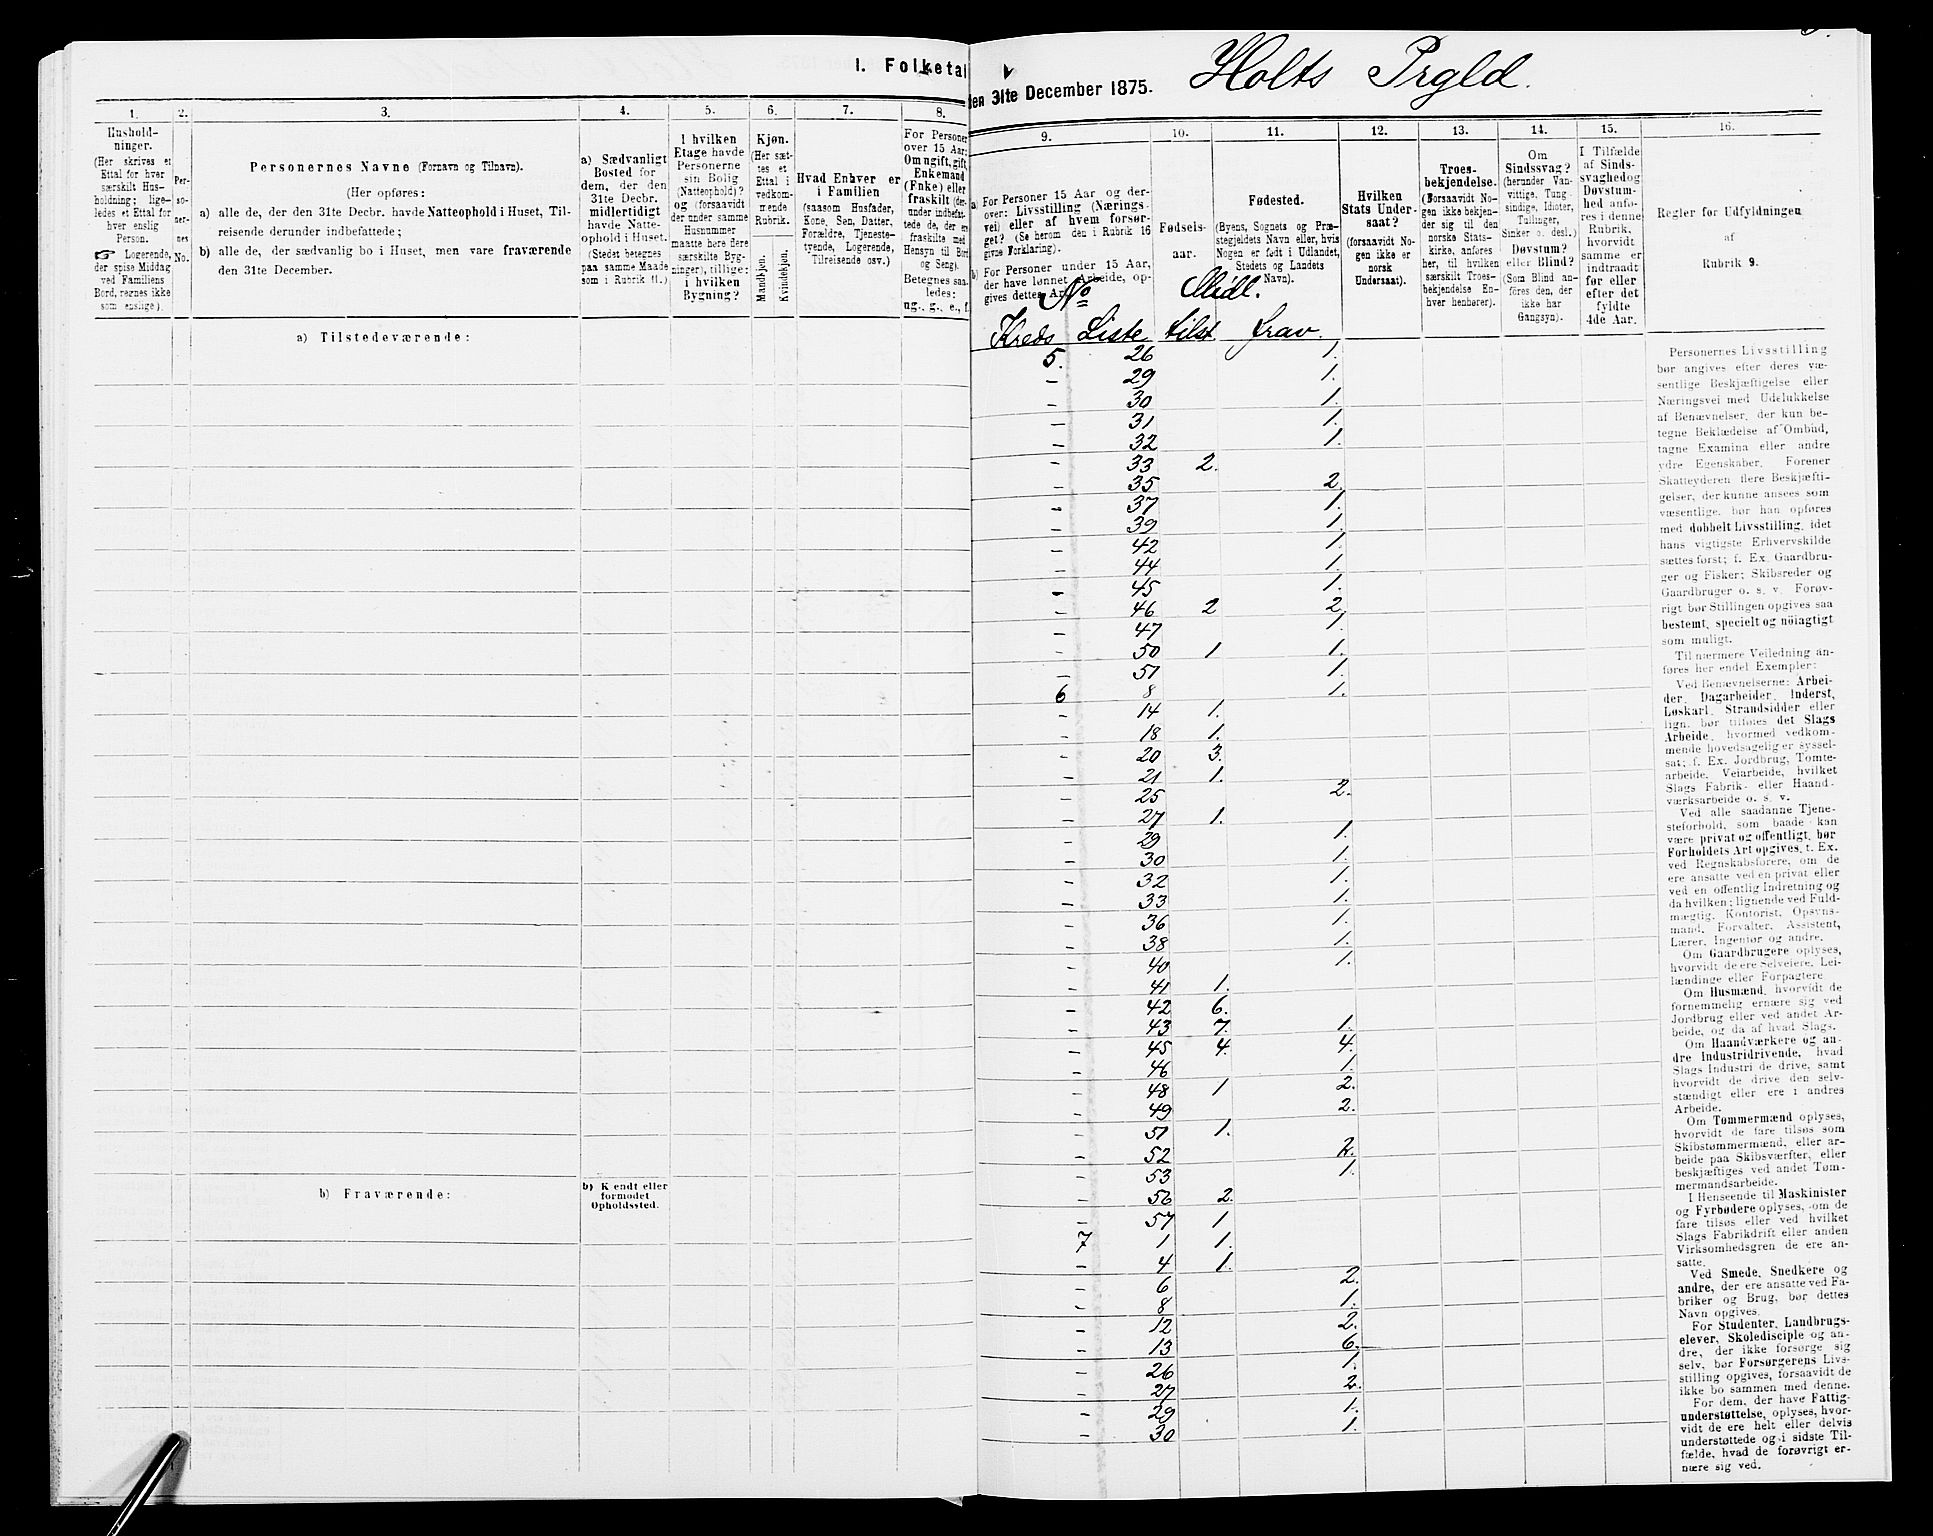 I. Folketal
den 31te December 1875.
Holts Prgld.
1.
2.
3.
4.
5.
6.
7.
8.
9.
10.
11.
12.
13.
14.
15.
16.
Hushold-
ninger.
(Her skrives et
Ettal for hver
særskilt Hus-
holdning; lige-
ledes et Ettal for
hver enslig
Person.
☞ Logerende,
der spise Middag
ved Familiens
Bord, regnes ikke
som enslige).
Per-
so-
ner-
nes
No.
Personernes Navne (Fornavn og Tilnavn).
(Her opføres:
a) alle de, der den 31te Decbr. havde Natteophold i Huset, Til-
reisende derunder indbefattede;
b) alle de, der sædvanlig bo i Huset, men vare fraværende
den 31te December.
a) Sædvanligt
Bosted for
dem, der den
31te Decbr.
midlertidigt
havde Natte-
ophold i Huset.
(Stedet betegnes
paa samme Maade
som i Rubrik 11.)
I hvilken
Etage havde
Personerne
sin Bolig
(Natteophold)?
og (forsaavidt
der under samme
Husnummer
maatte høre flere
særskilte Byg-
ninger), tillige:
i hvilken
Bygning?
Kjøn.
(Her sæt-
tes et
Ettal i
vedkom-
mende
Rubrik.
Mandkjøn.
Kvindekjøn.
Hvad Enhver er
i Familien
(saasom Husfader,
Kone, Søn, Datter,
Forældre, Tjeneste-
tyende, Logerende,
Tilreisende osv.)
For Personer
over 15 Aar:
Om ugift, gift,
Enkemand
(Enke) eller
fraskilt (der-
under indbefat-
tede de, der ere
fraskilte med
Hensyn til Bord
og Seng).
Betegnes saa-
ledes:
ug., g., e., f.
a) For Personer 15 Aar og der-
over: Livsstilling (Nærings-
vei) eller af hvem forsør-
get? (Se herom den i Rubrik 16
givne Forklaring).
b) For Personer under 15 Aar,
der have lønnet Arbeide, op-
gives dettes Art.
Fødsels-
aar.
Fødested.
(Byens, Sognets og Præ-
stegjeldets Navn eller, hvis
Nogen er født i Udlandet,
Stedets og Landets
Navn).
Hvilken
Stats Under-
saat?
(forsaavidt No-
gen ikke er
norsk
Undersaat).
Troes-
bekjendelse.
(Forsaavidt No-
gen ikke bekjen-
der sig til den
norske Stats-
kirke, anføres
her, til hvilken
særskilt Troes-
bekjendelse En-
hver henhører).
Om
Sindssvag?
(herunder Van-
vittige, Tung-
sindige, Idioter,
Tullinger,
Sinker o. desl.)
Døvstum?
eller Blind?
(Som Blind an-
føres den, der
ikke har
Gangsyn).
I Tilfælde
af Sinds-
svaghed og
Døvstum-
hed anfø-
res i denne
Rubrik,
hvorvidt
samme er
indtraadt
før eller
efter det
fyldte
4de Aar.
Regler for Udfyldningen
af
Rubrik 9.
No Midl.
Kreds Liste tilst frav.
5. 26 1.
– 29 1.
– 30 1.
– 31 1.
– 32 1.
– 33 2.
– 35 2.
– 37 1.
– 39 1.
– 42 1.
– 44 1.
– 45 1.
– 46 2 2.
– 47 1.
– 50 1 1.
– 51 1.
6 8 1.
– 14 1.
– 18 1.
– 20 3.
– 21 1.
– 25 2.
– 27 1.
– 29 1.
– 30 1.
– 32 1.
– 33 1.
– 36 1.
– 38 1.
– 40 1.
– 41 1.
– 42 6.
– 43 7. 1.
– 45 4. 4.
– 46 1.
– 48 1 2.
– 49 2.
– 51 1.
– 52 2.
– 53 1.
– 56 2.
– 57 1
7 1 1.
– 4 1.
– 6 2.
– 8 1.
– 12 2.
– 13 6.
– 26 1.
– 27 2.
– 29 1.
– 30 1.
a) Tilstedeværende:
b) Fraværende:
b) Kjendt eller
formodet
Opholdssted.
Personernes Livsstilling
bør angives efter deres væ-
sentlige Beskjæftigelse eller
Næringsvei med Udelukkelse
af Benævnelser, der kun be-
tegne Beklædelse af Ombud,
tagne Examina eller andre
ydre Egenskaber. Forener
Skatteyderen flere Beskjæfti-
gelser, der kunne ansees som
væsentlige, bør han opføres
med dobbelt Livsstilling, idet
hans vigtigste Erhvervskilde
sættes først; f. Ex. Gaardbru-
ger og Fisker; Skibsreder og
Gaardbruger o. s. v. Forøv-
rigt bør Stillingen opgives saa
bestemt, specielt og nöiagtigt
som muligt.
Til nærmere Veiledning an-
føres her endel Exempler:
Ved Benævnelserne: Arbei-
der, Dagarbeider, Inderst,
Løskarl, Strandsidder eller
lign. bør tilføies det Slags
Arbeide, hvormed vedkom-
mende hovedsagelig er syssel-
sat; f. Ex. Jordbrug, Tomte-
arbeide, Veiarbeide, hvilket
Slags Fabrik- eller Haand-
værksarbeide o. s. v.
Ved alle saadanne Tjene-
steforhold, som baade kan
være privat og offentligt, bør
Forholdets Art opgives, f. Ex.
ved Regnskabsførere, om de
ere ansatte ved en privat eller
ved en offentlig Indretning og
da hvilken; lignende ved Fuld-
mægtig, Kontorist, Opsyns-
mand, Forvalter, Assistent,
Lærer, Ingeniør og andre.
Om Gaardbrugere oplyses,
hvorvidt de ere Selveiere, Lei-
lændinge eller Forpagtere.
Om Husmænd, hvorvidt de
fornemmelig ernære sig ved
Jordbrug eller ved andet Ar-
beide, og da af hvad Slags.
Om Haandværkere og an-
dre Industridrivende, hvad
Slags Industri de drive, samt
hvorvidt de drive den selv-
stændigt eller ere i andres
Arbeide.
Om Tømmermænd oplyses,
hvorvidt de fare tilsøs som
Skibstømmermænd, eller ar-
beide paa Skibsværfter, eller
beskjæftiges ved andet Tøm-
mermandsarbeide.
I Henseende til Maskinister
og Fyrbødere oplyses, om de
fare tilsøs eller ved hvilket
Slags Fabrikdrift eller anden
Virksomhedsgren de ere an-
satte.
Ved Smede, Snedkere og
andre, der ere ansatte ved Fa-
briker og Brug, bør dettes
Navn opgives.
For Studenter, Landbrugs-
elever, Skoledisciple og an-
dre, der ikke forsørge sig
selv, bør Forsørgerens Livs-
stilling opgives, forsaavidt de
ikke bo sammen med denne.
For dem, der have Fattig-
understøttelse, oplyses, hvor-
vidt de ere helt eller delvis
understøttede og i sidste Til-
fælde, hvad de forøvrigt er-
nære sig ved.